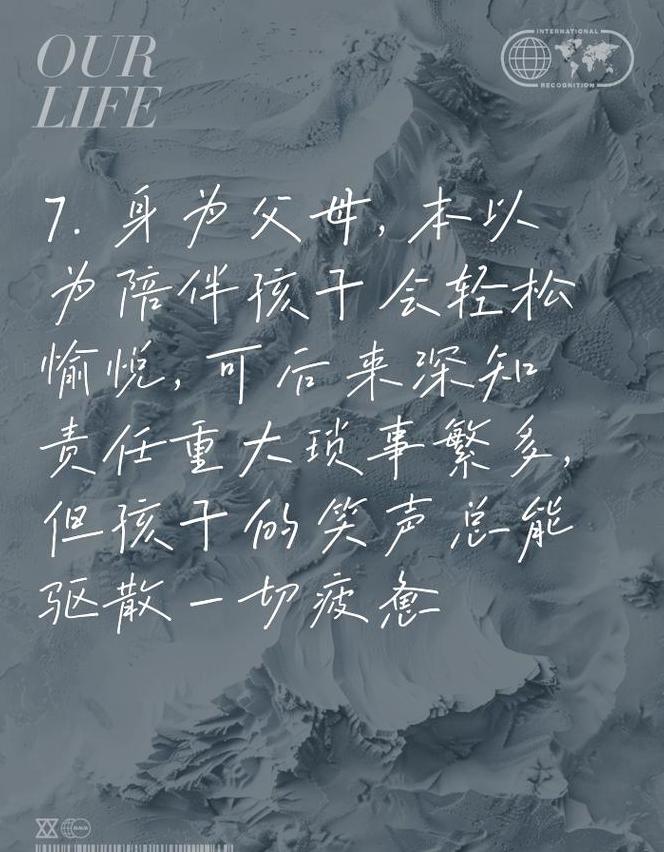 OUR
LIFE
INTERNATIONAL
RECOGNITION
7. 身为父母，本以
为陪伴孩子会轻松
愉悦，可后来深知
责任重大琐事繁多，
但孩子的笑声总能
驱散一切疲惫